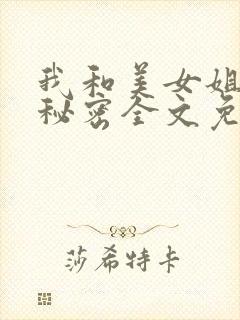 我和美女姐
秘密全文免
莎希特卡